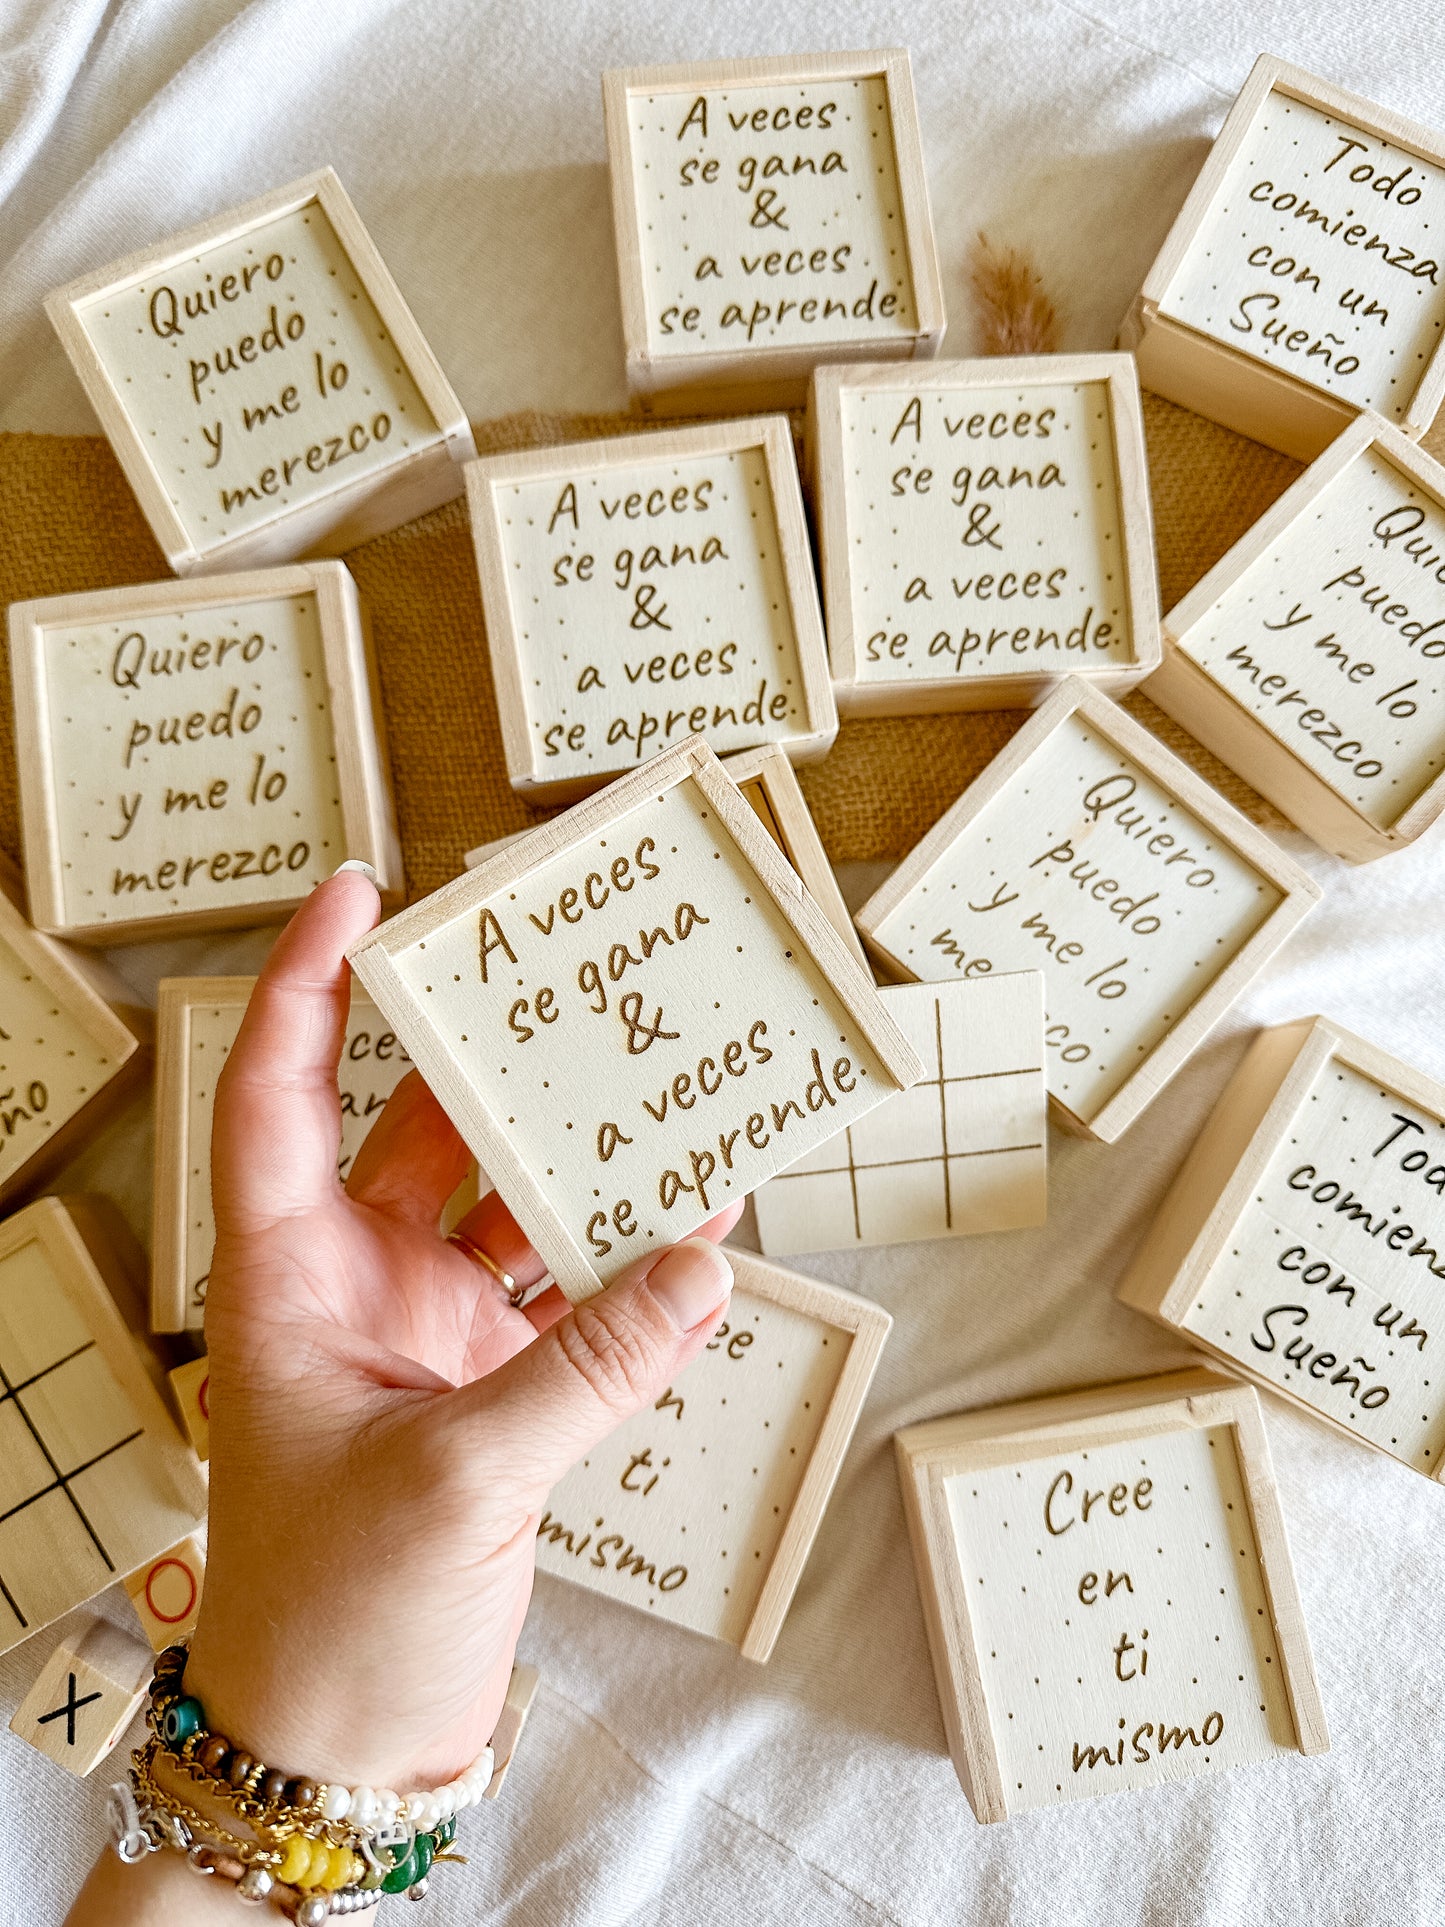 A veces
se gana
&
a veces
se aprende
Todo
comienza
con un
Sueño
Quiero
puedo
y me lo
merezco
A veces
se gana
&
a veces
se aprende
A veces
se gana
&
a veces
se aprende
puedo
y me lo
merezco
Quiero
puedo
y me lo
merezco
Quiero
puedo
y me lo
A veces
se gana
&
a veces
se aprende
comienza
con un
Sueño
ti
mismo
Cree
en
ti
mismo
O
X